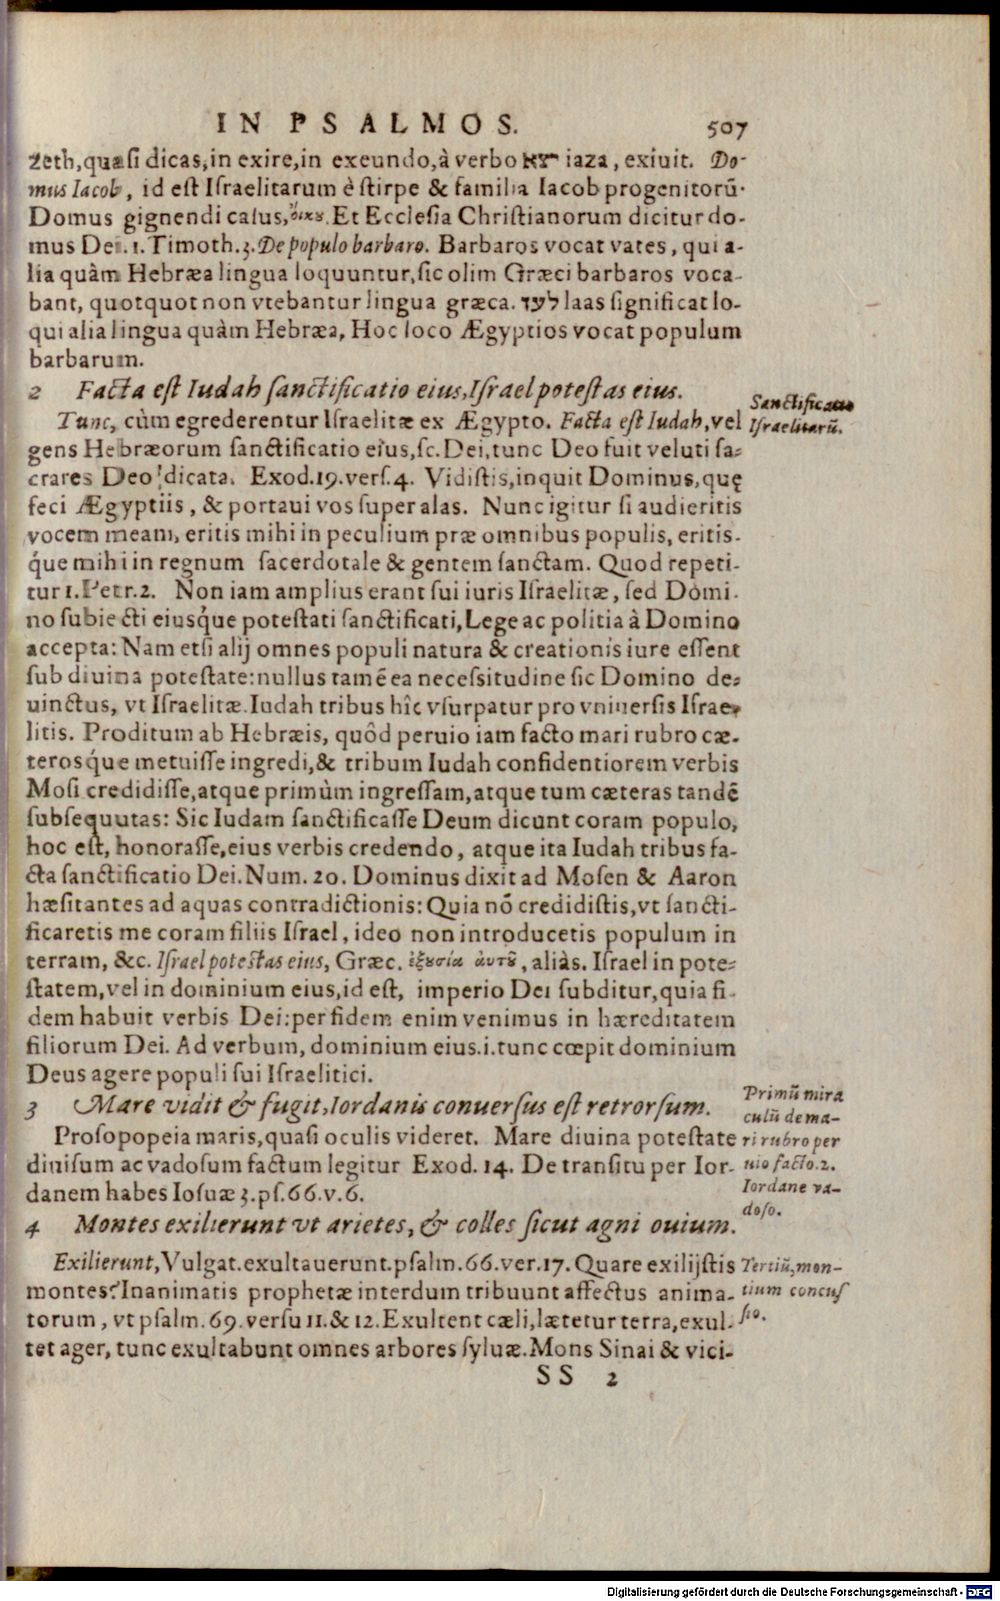 IN PSALMOS. 507
zeth, quasi dicas, in exire, in exeundo, à verbo יצא iaza, exiuit. Do-
mus Iacob, id est Israelitarum è stirpe & familia Iacob progenitorū.
Domus gignendi casus, οἴκου. Et Ecclesia Christianorum dicitur do-
mus Dei. 1. Timoth. 3. De populo barbaro. Barbaros vocat vates, qui a-
lia quàm Hebræa lingua loquuntur, sic olim Græci barbaros voca-
bant, quotquot non vtebantur lingua græca. לעז laas significat lo-
qui alia lingua quàm Hebræa, Hoc loco Ægyptios vocat populum
barbarum.
2 Facta est Iudah sanctificatio eius, Israel potestas eius.
Sanctificatio
Israelitarū.
Tunc, cùm egrederentur Israelitæ ex Ægypto. Facta est Iudah, vel
gens Hebræorum sanctificatio eius, sc. Dei, tunc Deo fuit veluti sa-
crares Deo dicata. Exod. 19. vers. 4. Vidistis, inquit Dominus, quę
feci Ægyptiis, & portaui vos super alas. Nunc igitur si audieritis
vocem meam, eritis mihi in peculium præ omnibus populis, eritis-
q́ue mihi in regnum sacerdotale & gentem sanctam. Quod repeti-
tur 1. Petr. 2. Non iam amplius erant sui iuris Israelitæ, sed Domi-
no subiecti eiusq́ue potestati sanctificati, Lege ac politia à Domino
accepta: Nam etsi alij omnes populi natura & creationis iure essent
sub diuina potestate: nullus tamē ea necessitudine sic Domino de-
uinctus, vt Israelitæ. Iudah tribus hîc vsurpatur pro vniuersis Israe-
litis. Proditum ab Hebræis, quôd peruio iam facto mari rubro cæ-
terosq́ue metuisse ingredi, & tribum Iudah confidentiorem verbis
Mosi credidisse, atque primùm ingressam, atque tum cæteras tandē
subsequutas: Sic Iudam sanctificasse Deum dicunt coram populo,
hoc est, honorasse, eius verbis credendo, atque ita Iudah tribus fa-
cta sanctificatio Dei. Num. 20. Dominus dixit ad Mosen & Aaron
hæsitantes ad aquas contradictionis: Quia nō credidistis, vt sancti-
ficaretis me coram filiis Israel, ideo non introducetis populum in
terram, &c. Israel potestas eius, Græc. ἐξουσία ἀυτοῦ, aliàs. Israel in pote-
statem, vel in dominium eius, id est, imperio Dei subditur, quia fi-
dem habuit verbis Dei: per fidem enim venimus in hæreditatem
filiorum Dei. Ad verbum, dominium eius. i. tunc cœpit dominium
Deus agere populi sui Israelitici.
3 Mare vidit & fugit, Iordanis conuersus est retrorsum.
Primū mira
culū de ma-
ri rubro per
uio facto. 2.
Iordane va-
doso.
Prosopopeia maris, quasi oculis videret. Mare diuina potestate
diuisum ac vadosum factum legitur Exod. 14. De transitu per Ior-
danem habes Iosuæ 3. ps. 66. v. 6.
4 Montes exilierunt vt arietes, & colles sicut agni ouium.
Tertiū, mon-
tium concus
sio.
Exilierunt, Vulgat. exultauerunt. psalm. 66. ver. 17. Quare exilijstis
montes? Inanimatis prophetæ interdum tribuunt affectus anima-
torum, vt psalm. 69. versu 11. & 12. Exultent cæli, lætetur terra, exul-
tet ager, tunc exultabunt omnes arbores syluæ. Mons Sinai & vici-
SS 2
Digitalisierung gefördert durch die Deutsche Forschungsgemeinschaft - DFG